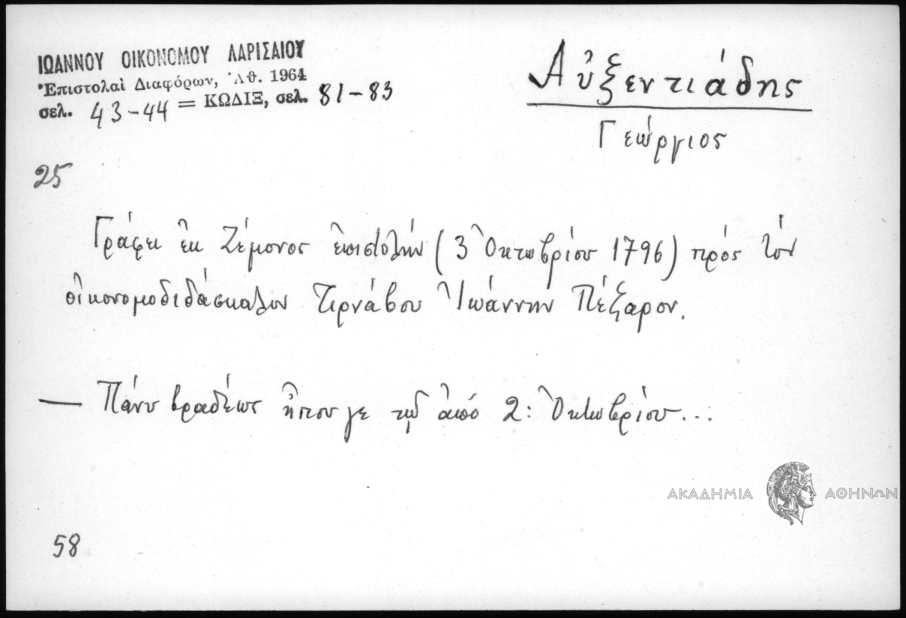 ΙΩΑΝΝΟΥ ΟΙΚΟΝΟΜΟΥ ΛΑΡΙΣΑΙΟΥ
Ἐπιστολαὶ Διαφόρων, Ἀθ. 1964
σελ. 43-44 = ΚΩΔΙΞ, σελ. 81-83
Αὐξεντιάδης
Γεώργιος
25
Γράφει ἐκ Ζέμονος ἐπιστολήν (3 Ὀκτωβρίου 1796) πρός τόν
οἰκονομοδιδάσκαλον Τιρνάβου Ἰωάννην Πέζαρον.
— Πάνυ βραδέως ἤπου γε τῇ ἀπό 2: Ὀκτωβρίου...
ΑΚΑΔΗΜΙΑ ΑΘΗΝΩΝ
58